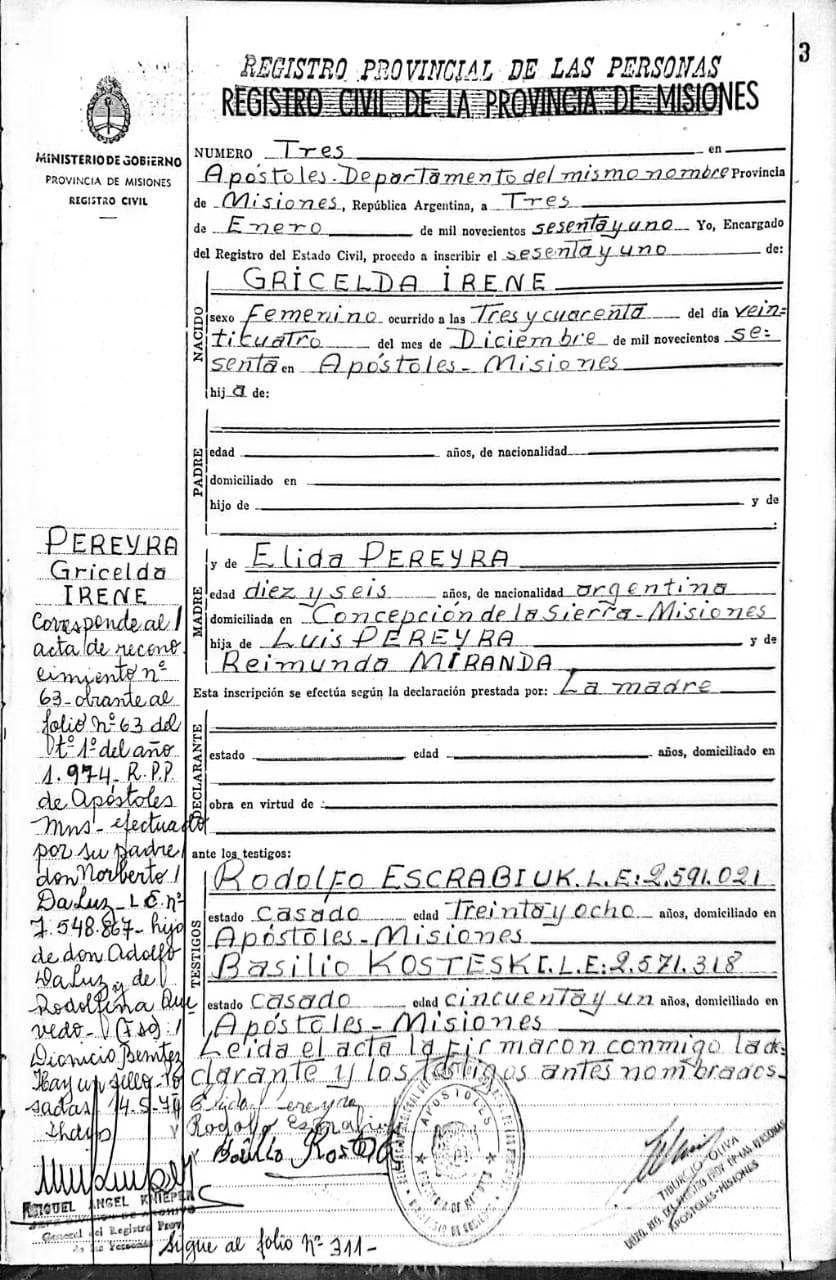 3
REGISTRO PROVINCIAL DE LAS PERSONAS
REGISTRO CIVIL DE LA PROVINCIA DE MISIONES
MINISTERIO DE GOBIERNO
PROVINCIA DE MISIONES
REGISTRO CIVIL
NUMERO Tres en
Apóstoles-Departamento del mismo nombre Provincia
de Misiones, República Argentina, a Tres
de Enero de mil novecientos sesenta y uno Yo, Encargado
del Registro del Estado Civil, procedo a inscribir el sesenta y uno de:
NACIDO
GRICELDA IRENE
sexo Femenino ocurrido a las Tres y cuarenta del día vein=
ticuatro del mes de Diciembre de mil novecientos se=
senta en Apóstoles- Misiones
hija de:
PADRE
edad años, de nacionalidad
domiciliado en
hijo de y de
MADRE
y de Elida PEREYRA
edad diez y seis años, de nacionalidad argentina
domiciliada en Concepción de la Sierra-Misiones
hija de Luis PEREYRA y de
Reimunda MIRANDA
Esta inscripción se efectúa según la declaración prestada por: La madre
DECLARANTE
estado edad años, domiciliado en
obra en virtud de :
ante los testigos:
TESTIGOS
Rodolfo ESCRABIUK.L.E:2.591.021
estado casado edad Treinta y ocho años, domiciliado en
Apóstoles-Misiones
Basilio KOSTESKI.L.E:2.571.318
estado casado edad cincuenta y un años, domiciliado en
Apóstoles-Misiones
Leida el acta la firmaron conmigo la de=
clarante y los testigos antes nombrados-
PEREYRA
Gricelda
IRENE
Corresponde al
acta de recono
cimiento nº
63-obrante al
folio Nº 63 del
tº 1º del año
1.974- R.P.P.
de Apóstoles
Mns- efectuado
por su padre
don Norberto
Da Luz- L.E. nº
7.548.867- hijo
de don Adolfo
Da Luz y de
Rodolfina Que
vedo-
Dionicio Benitez
Hay un sello-Po
sadas, 14-5-
Elida Pereyra
Rodolfo
Basilio
MIGUEL ANGEL KNIEPER
General del Registro Prov
de las Personas
Sigue al folio Nº 311-
APOSTOLES
TIBURCIO OLIVA
APOSTOLES-MISIONES